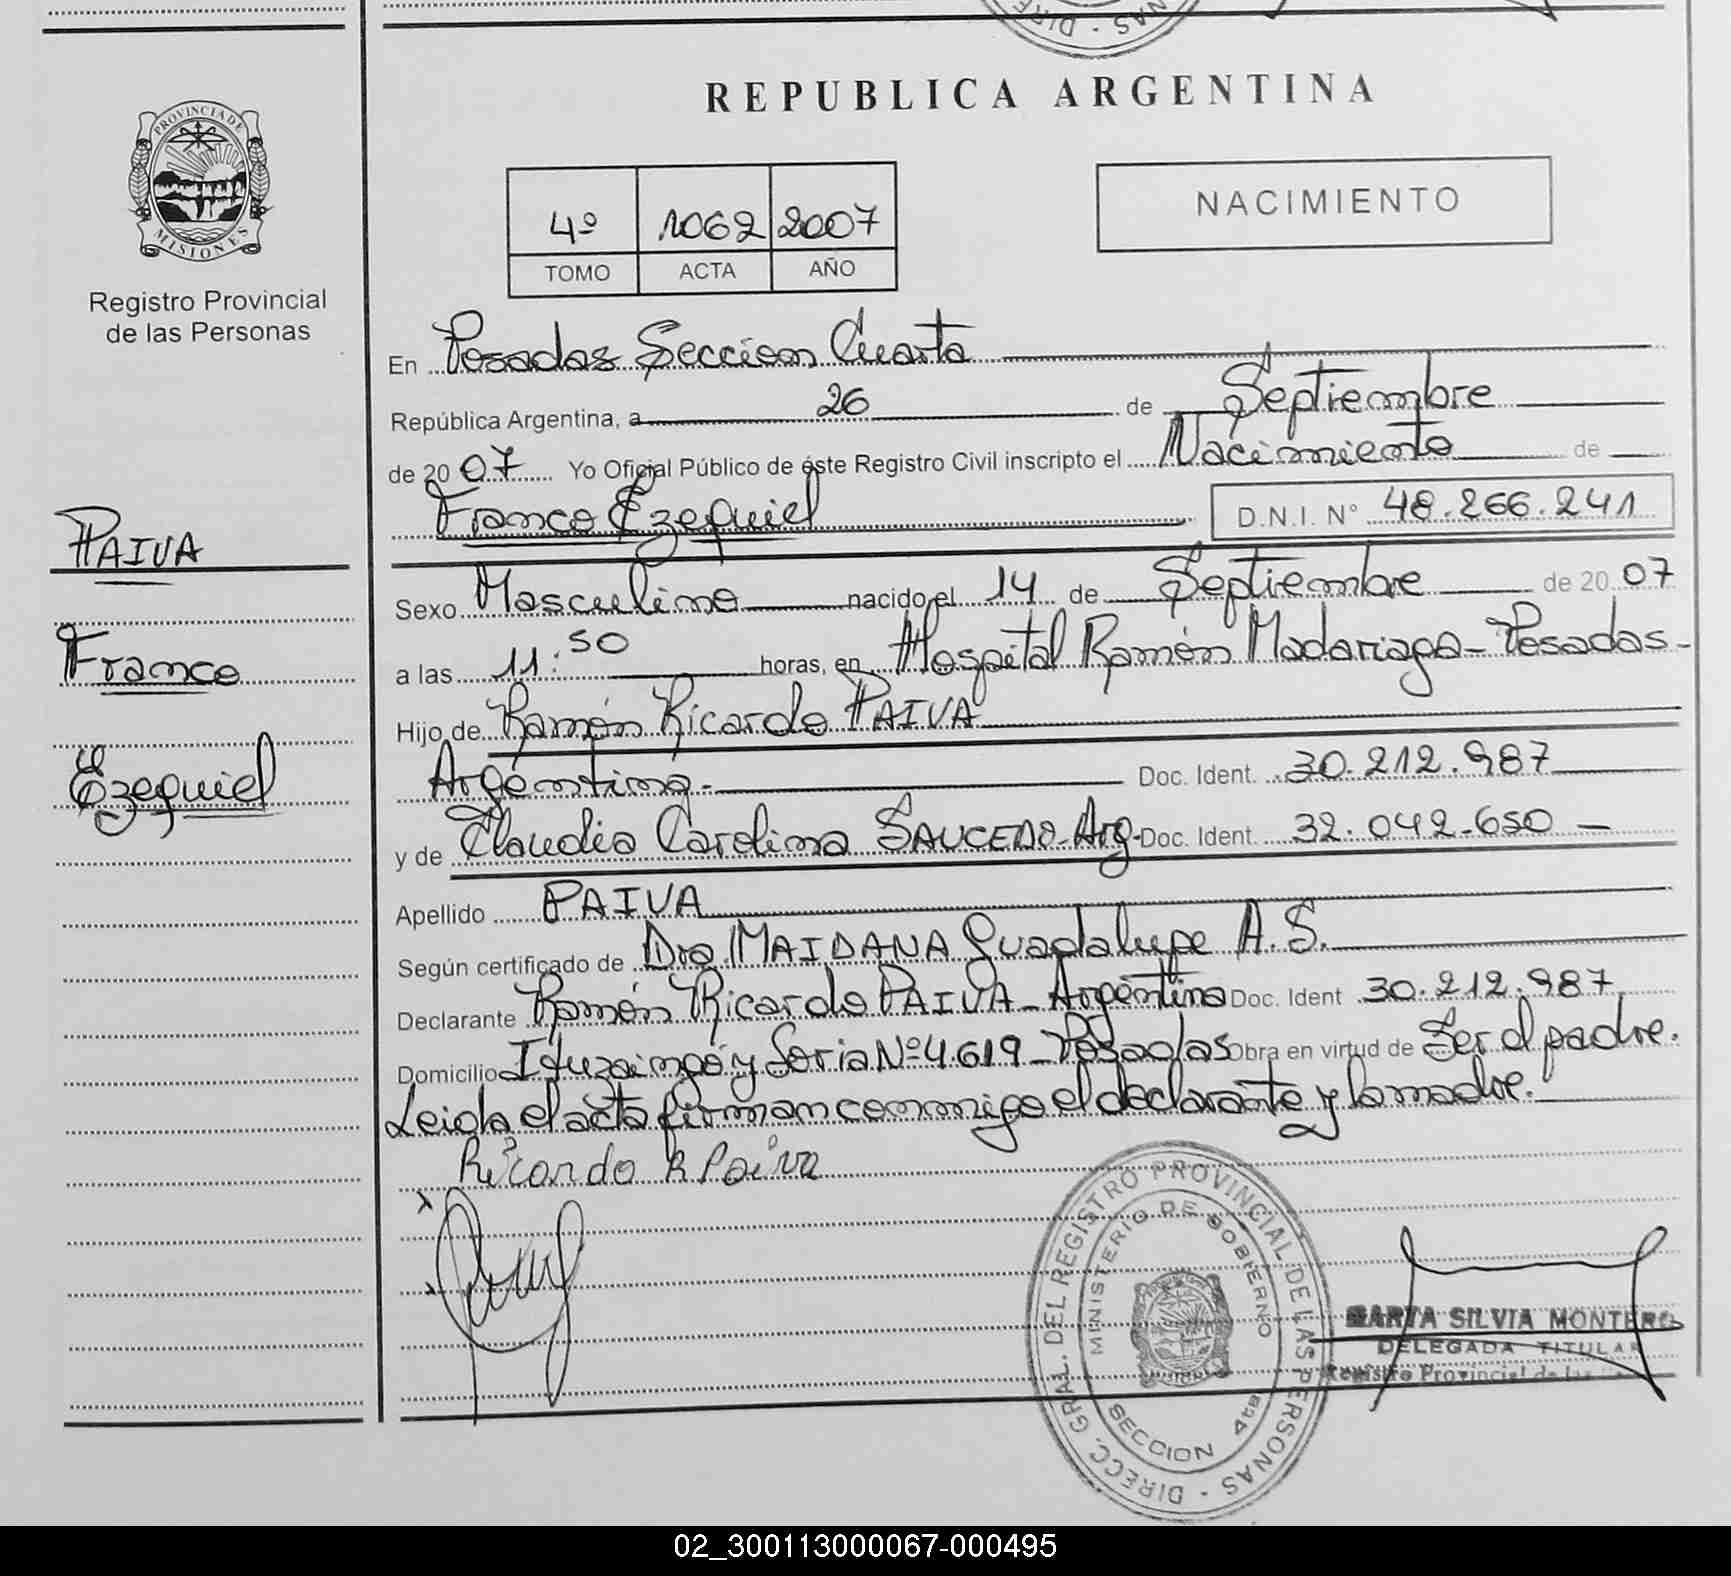 REPUBLICA ARGENTINA
PROVINCIA DE
MISIONES
Registro Provincial
de las Personas
4º 1062 2007
TOMO ACTA AÑO
NACIMIENTO
En Posadas Seccion Cuarta
República Argentina, a 26 de Septiembre
de 2007 Yo Oficial Público de éste Registro Civil inscripto el Nacimiento de
Franco Ezequiel D.N.I. Nº 48.266.241
PAIVA
Franco
Ezequiel
Sexo Masculino nacido el 14 de Septiembre de 2007
a las 11:50 horas, en Hospital Ramón Madariaga - Posadas -
Hijo de Ramón Ricardo PAIVA
Argentino.- Doc. Ident. 30.212.987
y de Claudia Carolina SAUCEDO - Arg. Doc. Ident. 32.042.650 -
Apellido PAIVA
Según certificado de Dra. MAIDANA Guadalupe A. S.
Declarante Ramón Ricardo PAIVA - Argentino Doc. Ident 30.212.987
Domicilio Ituzaingó y Soria Nº 4.619 - Posadas Obra en virtud de Ser el padre.
Leida el acta firman conmigo el declarante y la madre.
Ricardo R Paiva
DIRECC. GRAL. DEL REGISTRO PROVINCIAL DE LAS PERSONAS
MINISTERIO DE GOBIERNO
SECCION 4ta
MARTA SILVIA MONTERO
DELEGADA TITULAR
Registro Provincial de las
02_300113000067-000495